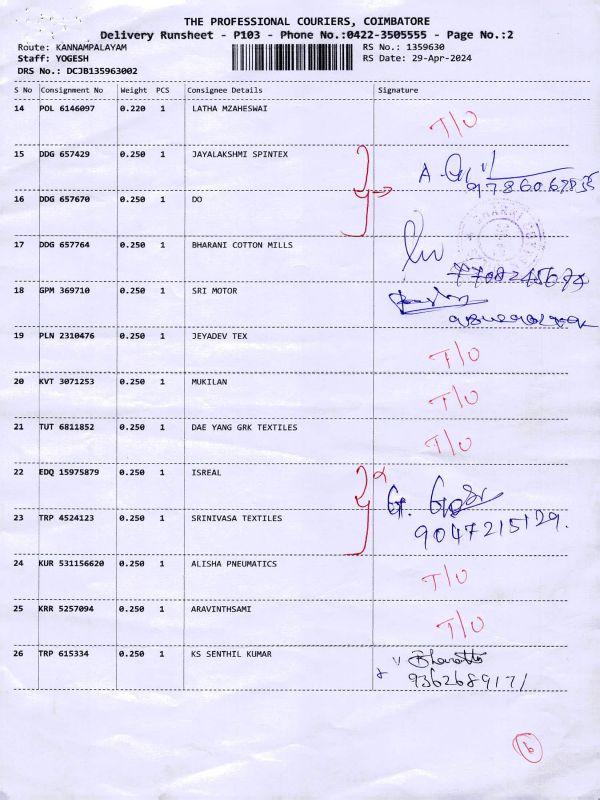 THE PROFESSIONAL COURIERS, COIMBATORE
Delivery Runsheet - P103 - Phone No.:0422-3505555 - Page No.:2
Route: KANNAMPALAYAM RS No.: 1359630
Staff: YOGESH RS Date: 29-Apr-2024
DRS No.: DCJB135963002
S No Consignment No Weight PCS Consignee Details Signature
14 POL 6146097 0.220 1 LATHA MZAHESWAI T/O
15 DDG 657429 0.250 1 JAYALAKSHMI SPINTEX
16 DDG 657670 0.250 1 DO
17 DDG 657764 0.250 1 BHARANI COTTON MILLS
18 GPM 369710 0.250 1 SRI MOTOR
19 PLN 2310476 0.250 1 JEYADEV TEX T/O
20 KVT 3071253 0.250 1 MUKILAN T/O
21 TUT 6811852 0.250 1 DAE YANG GRK TEXTILES T/O
22 EDQ 15975879 0.250 1 ISREAL
23 TRP 4524123 0.250 1 SRINIVASA TEXTILES 9047215129.
24 KUR 531156620 0.250 1 ALISHA PNEUMATICS T/O
25 KRR 5257094 0.250 1 ARAVINTHSAMI T/O
26 TRP 615334 0.250 1 KS SENTHIL KUMAR